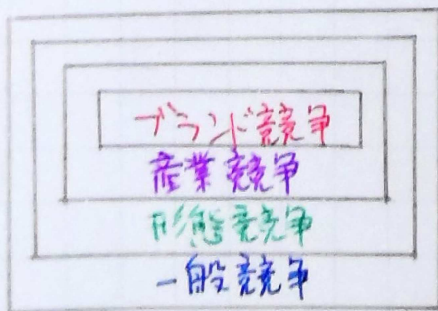 ブランド競争
産業競争
形態競争
一般競争